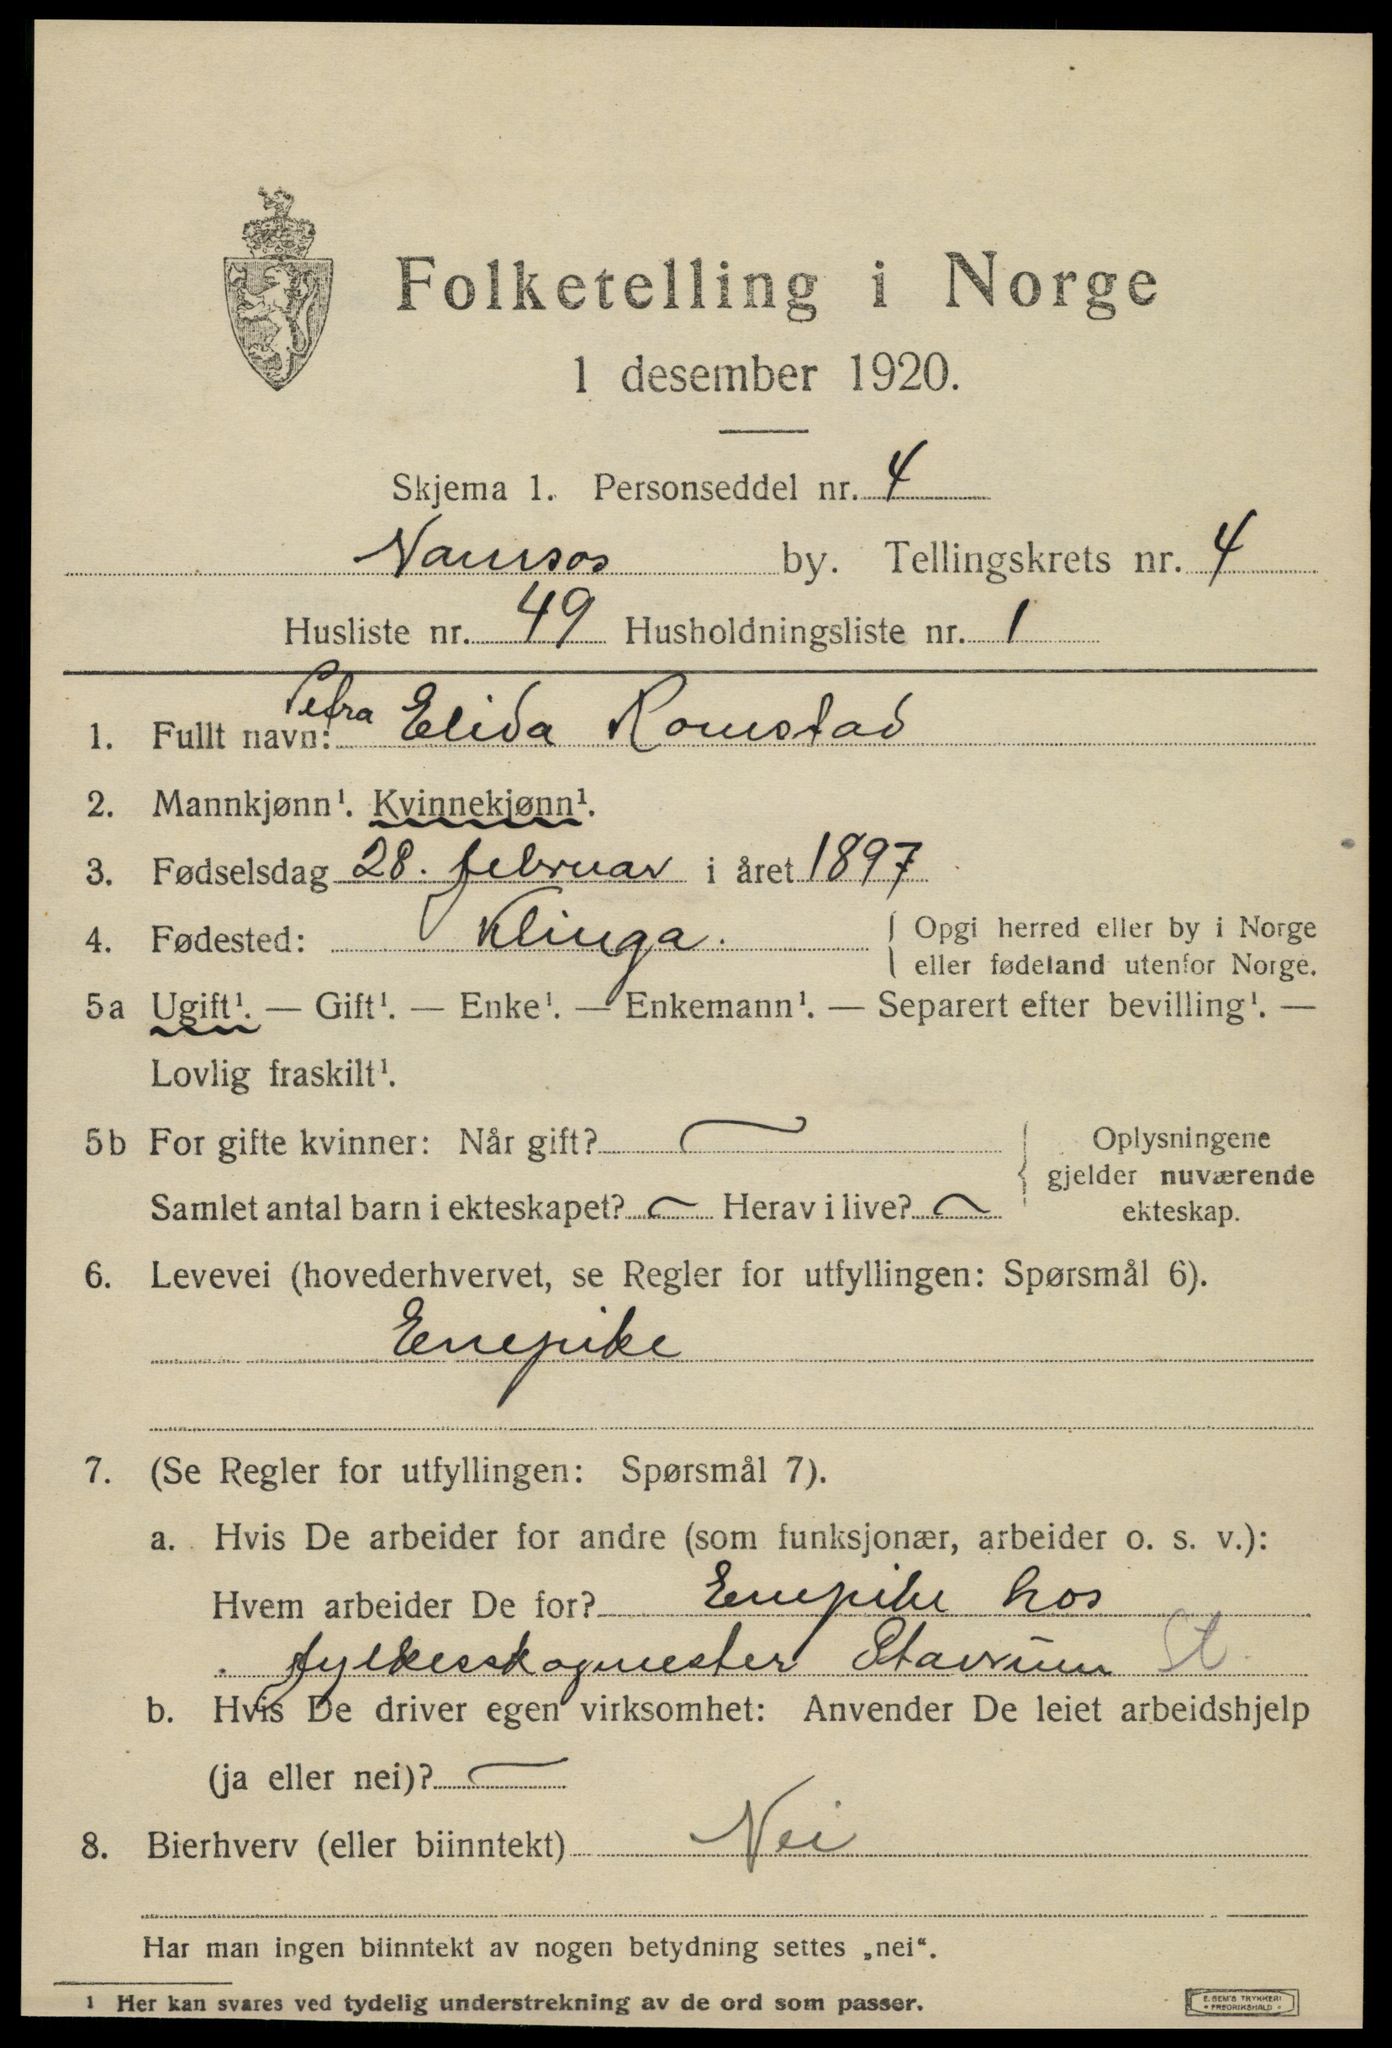 Folketelling i Norge
1 desember 1920.
Skjema 1. Personseddel nr. 4
Namsos by. Tellingskrets nr. 4
Husliste nr. 49 Husholdningsliste nr. 1
1. Fullt navn: Petra Elida Romstad
2. Mannkjønn¹. Kvinnekjønn¹.
3. Fødselsdag 28. februar i året 1897
4. Fødested: Klinga. { Opgi herred eller by i Norge
eller fødeland utenfor Norge.
5a Ugift¹. — Gift¹. — Enke¹. — Enkemann¹. — Separert efter bevilling¹. —
Lovlig fraskilt¹.
5b For gifte kvinner: Når gift? { Oplysningene
gjelder nuværende
Samlet antal barn i ekteskapet? Herav i live? ekteskap.
6. Levevei (hovederhvervet, se Regler for utfyllingen: Spørsmål 6).
Enepike
7. (Se Regler for utfyllingen: Spørsmål 7).
a. Hvis De arbeider for andre (som funksjonær, arbeider o. s. v.):
Hvem arbeider De for? Enepike hos
fylkesskogmester Stavrum St.
b. Hvis De driver egen virksomhet: Anvender De leiet arbeidshjelp
(ja eller nei)?
8. Bierhverv (eller biinntekt) Nei
Har man ingen biinntekt av nogen betydning settes „nei“.
¹ Her kan svares ved tydelig understrekning av de ord som passer.
E. SEM'S TRYKKERI
• FREDRIKSHALD •